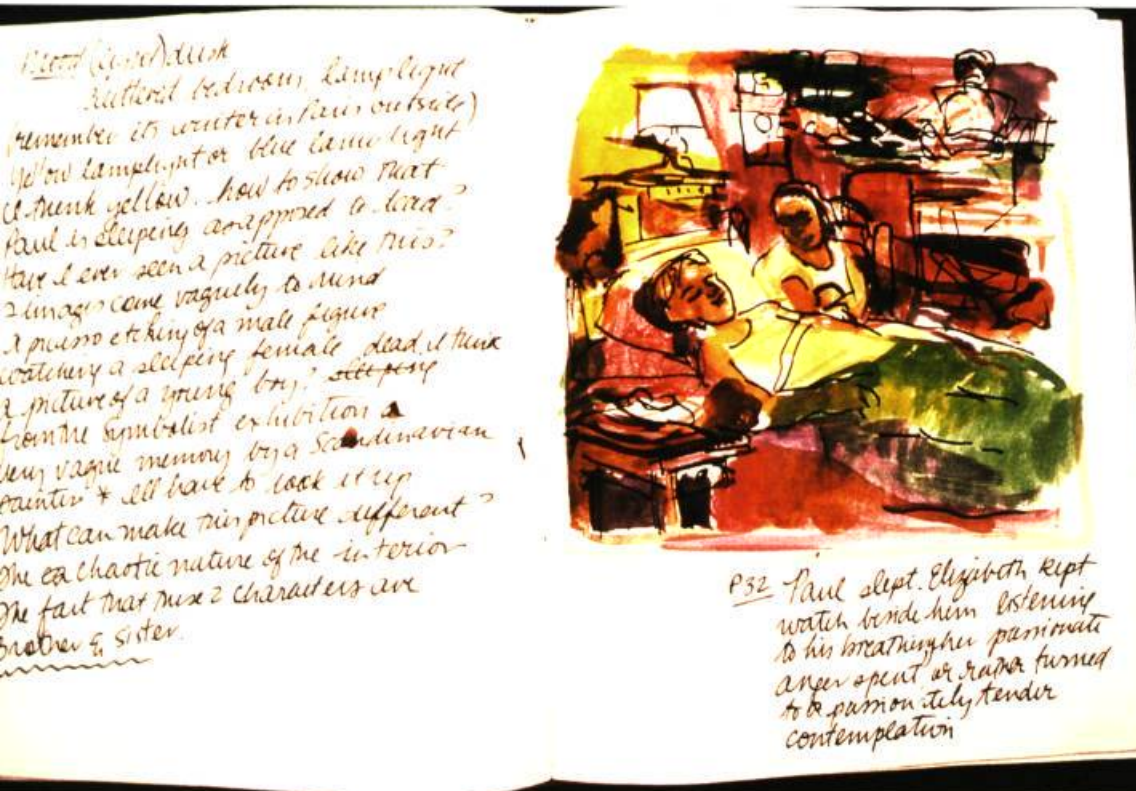 Mood (   ) dusk
cluttered bedroom, lamplight
(remember its winter in Paris outside)
Yellow lamplight or blue lamp light
I think yellow. how to show that
Paul is sleeping as apposed to dead?
Have I ever seen a picture like this?
2 images come vaguely to mind
A picasso etching of a male figure
watching a sleeping female dead, I think
a picture of a young boy? sleeping
from the Symbolist exhibition a
very vague memory by a Scandinavian
painter * ill have to look it up
What can make this picture different?
The ca chaotic nature of the interior
The fact that these 2 characters are
Brother & Sister.
P32 Paul slept. Elizabeth kept
watch beside him listening
to his breathing her passionate
anger spent or rather turned
to a passionately tender
contemplation